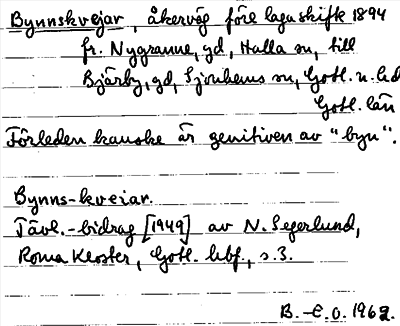 Bynnskvejar, åkerväg före laga skifte 1894
fr. Nygranne, gd, Halla sn, till
Bjärby, gd, Sjonhems sn, Gotl. n. hd
Gotl. län
Förleden kanske är genitiven av "byn".
Bynns-kveiar.
Tävl.-bidrag [1949] av N. Segerlund,
Roma Kloster, Gotl. hbf, s. 3.
B.-E. O. 1962.